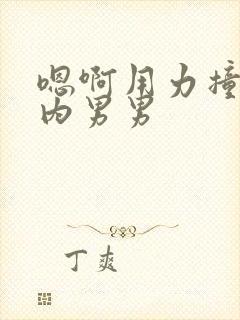 嗯啊用力撞
内男男
丁爽